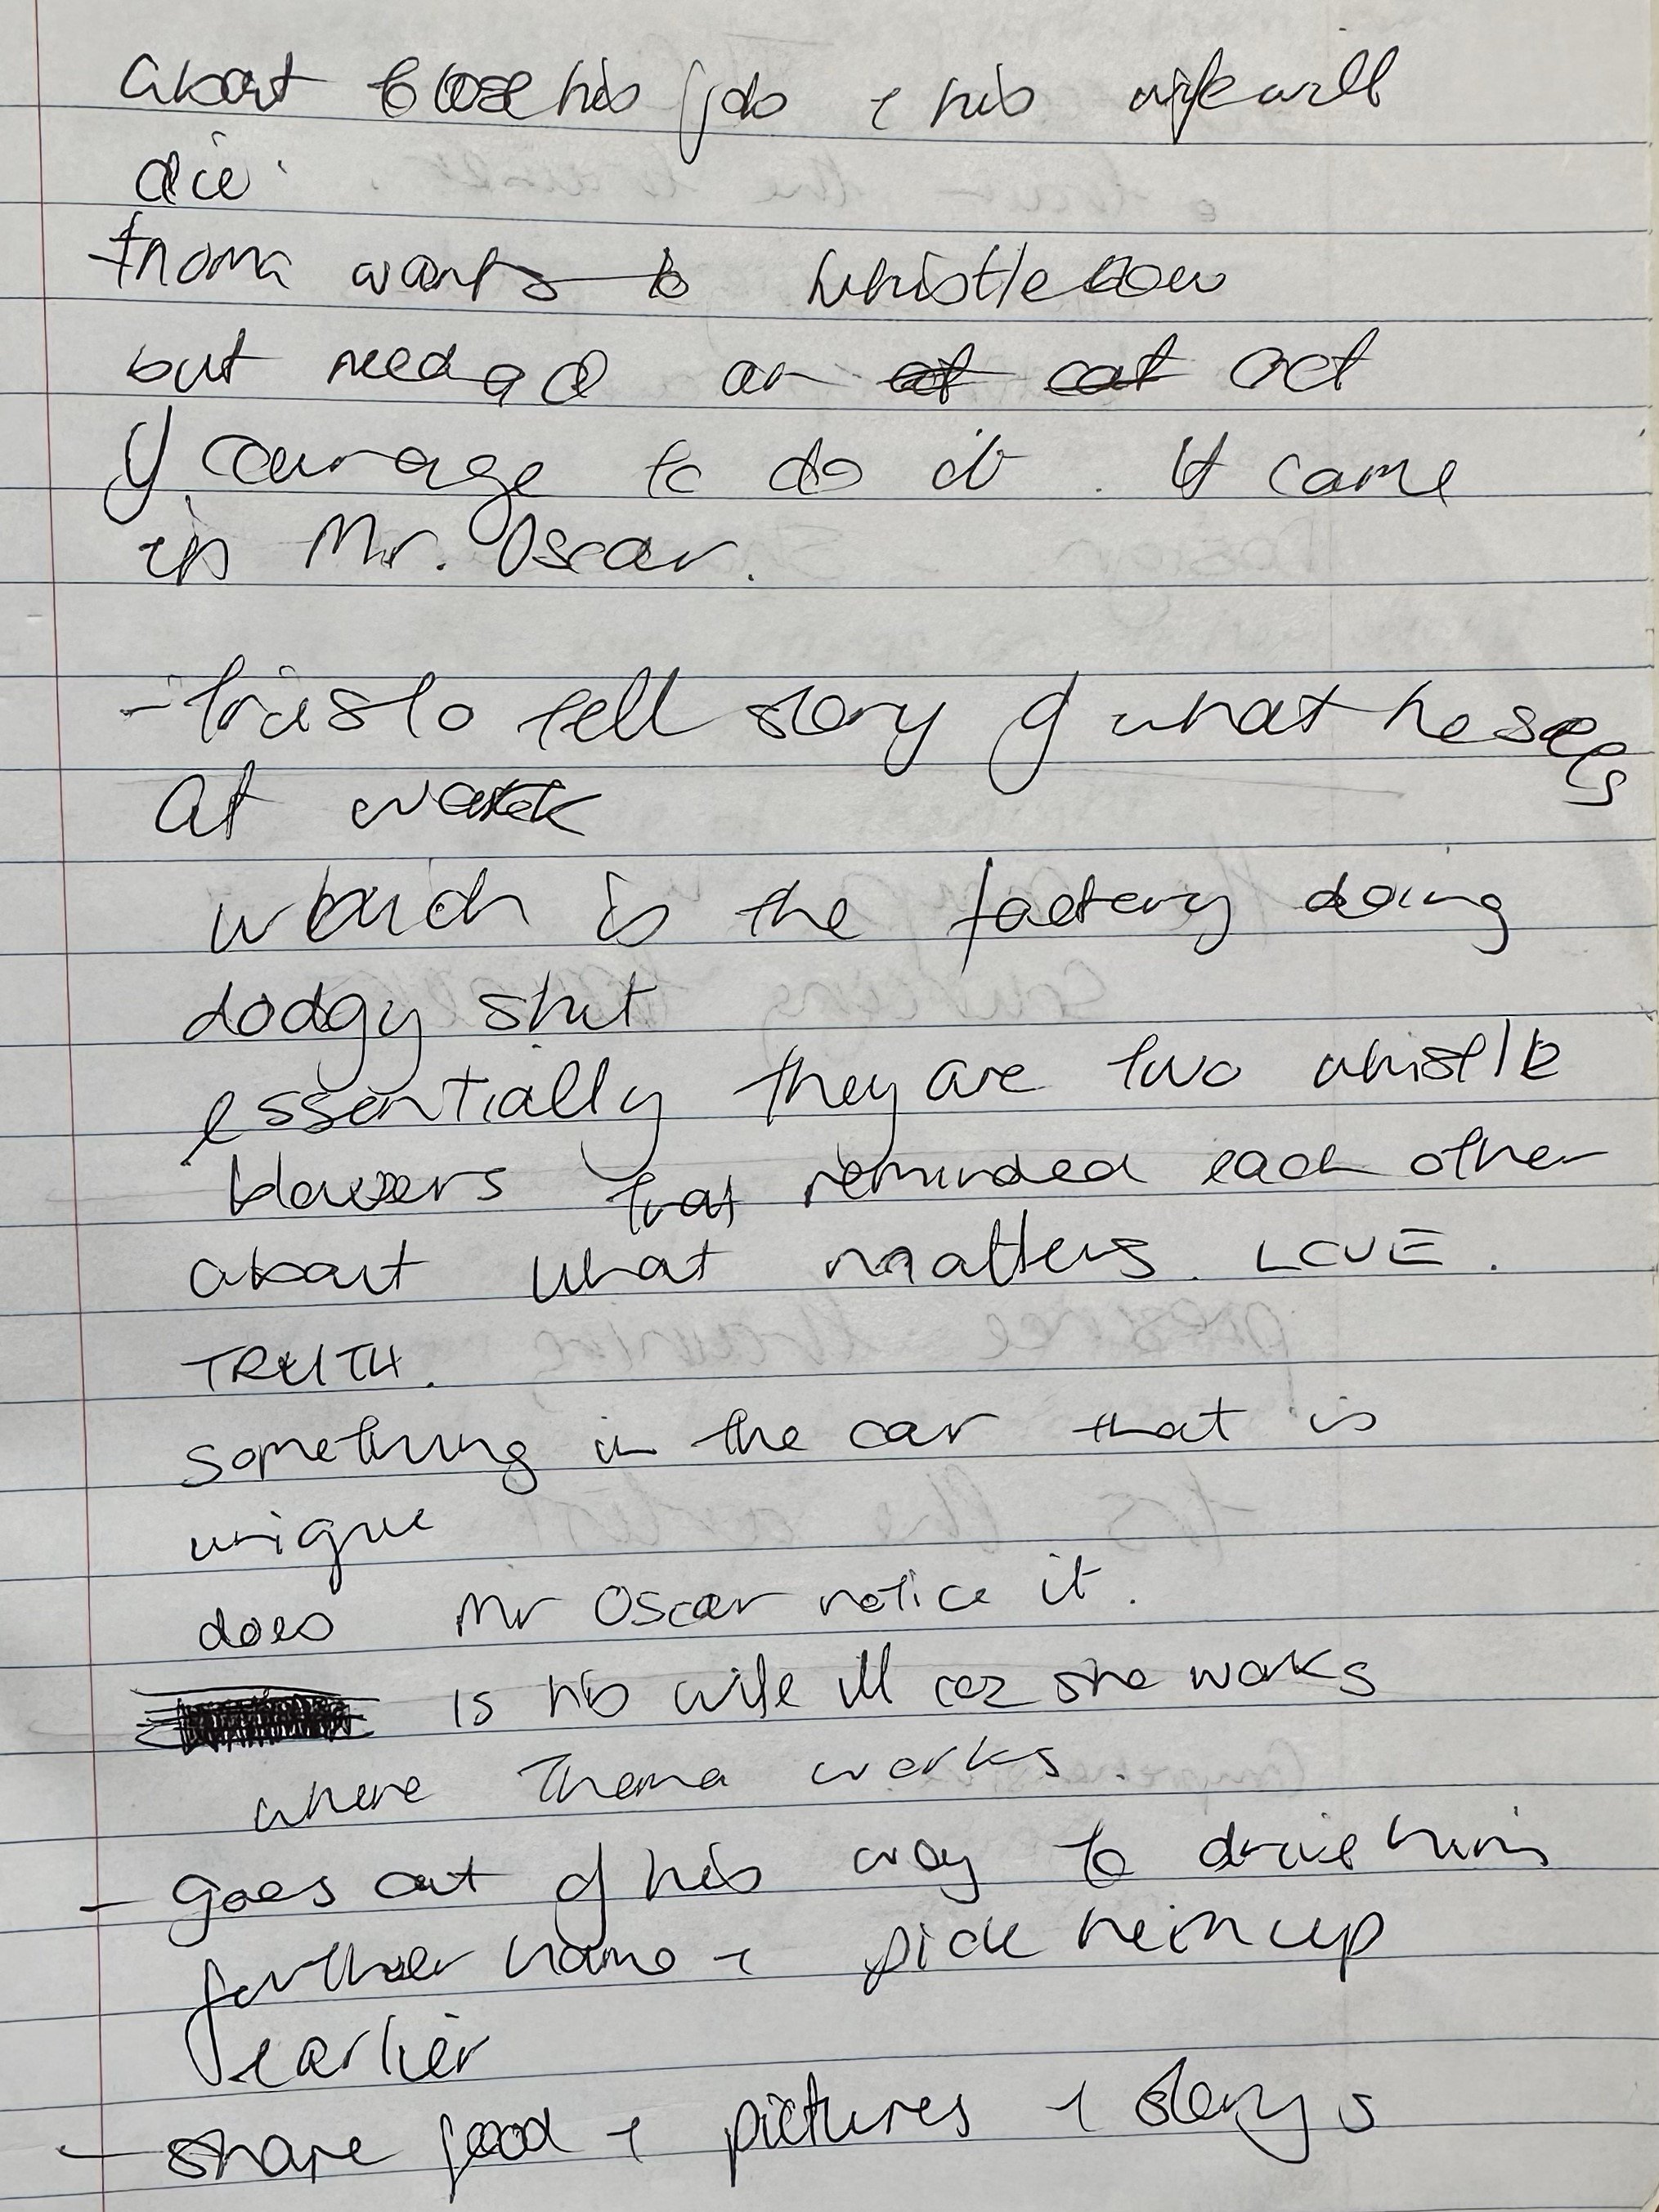 about to lose his job + his wife will
die.
Thoma wants to whistleblow
but needed an act
of courage to do it. It came
in Mr. Oscar.
- tries to tell story of what he sees
at work
which is the factory doing
dodgy shit
essentially they are two whistle
blowers that reminded each other
about what matters. LOVE.
TRUTH.
something in the car that is
unique
does Mr Oscar notice it.
is his wife ill coz she works
where Thoma works.
- goes out of his way to drive him
further home + pick him up
earlier
- share food + pictures + storys